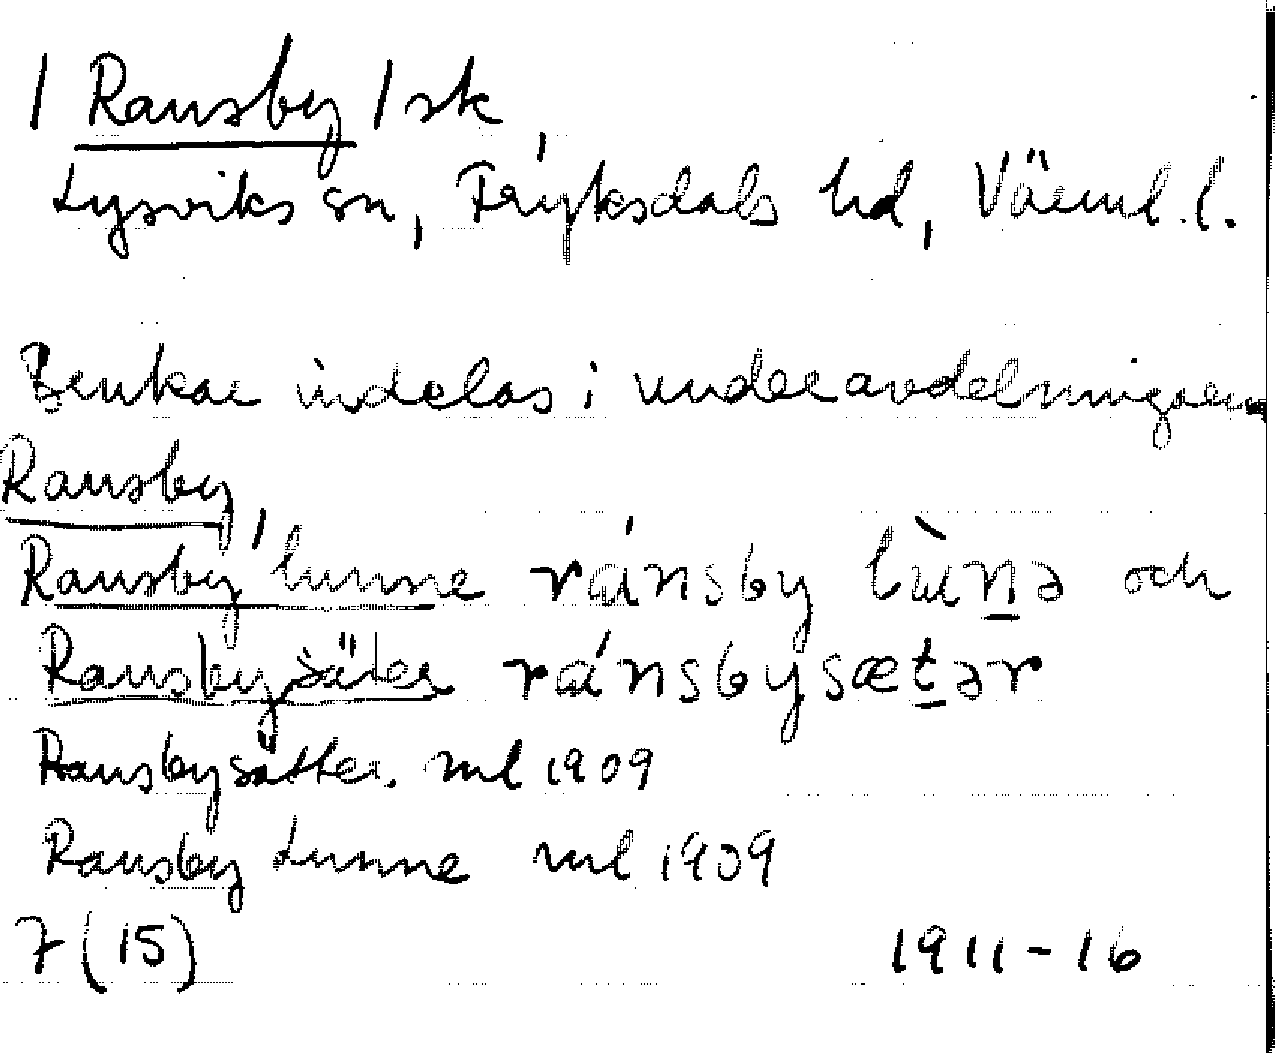 / Ransby / sk
Lysviks sn, Fryksdals hd, Värml. l.
Brukar indelas i underavdelningarna
Ransby,
Ransby lunne ránsby lùn̲ə och
Ransbysäter ránsbysæt̲ər
Ransbysätter. ml 1909
Ransby Lunne ml 1909
7 (15) 1911-16